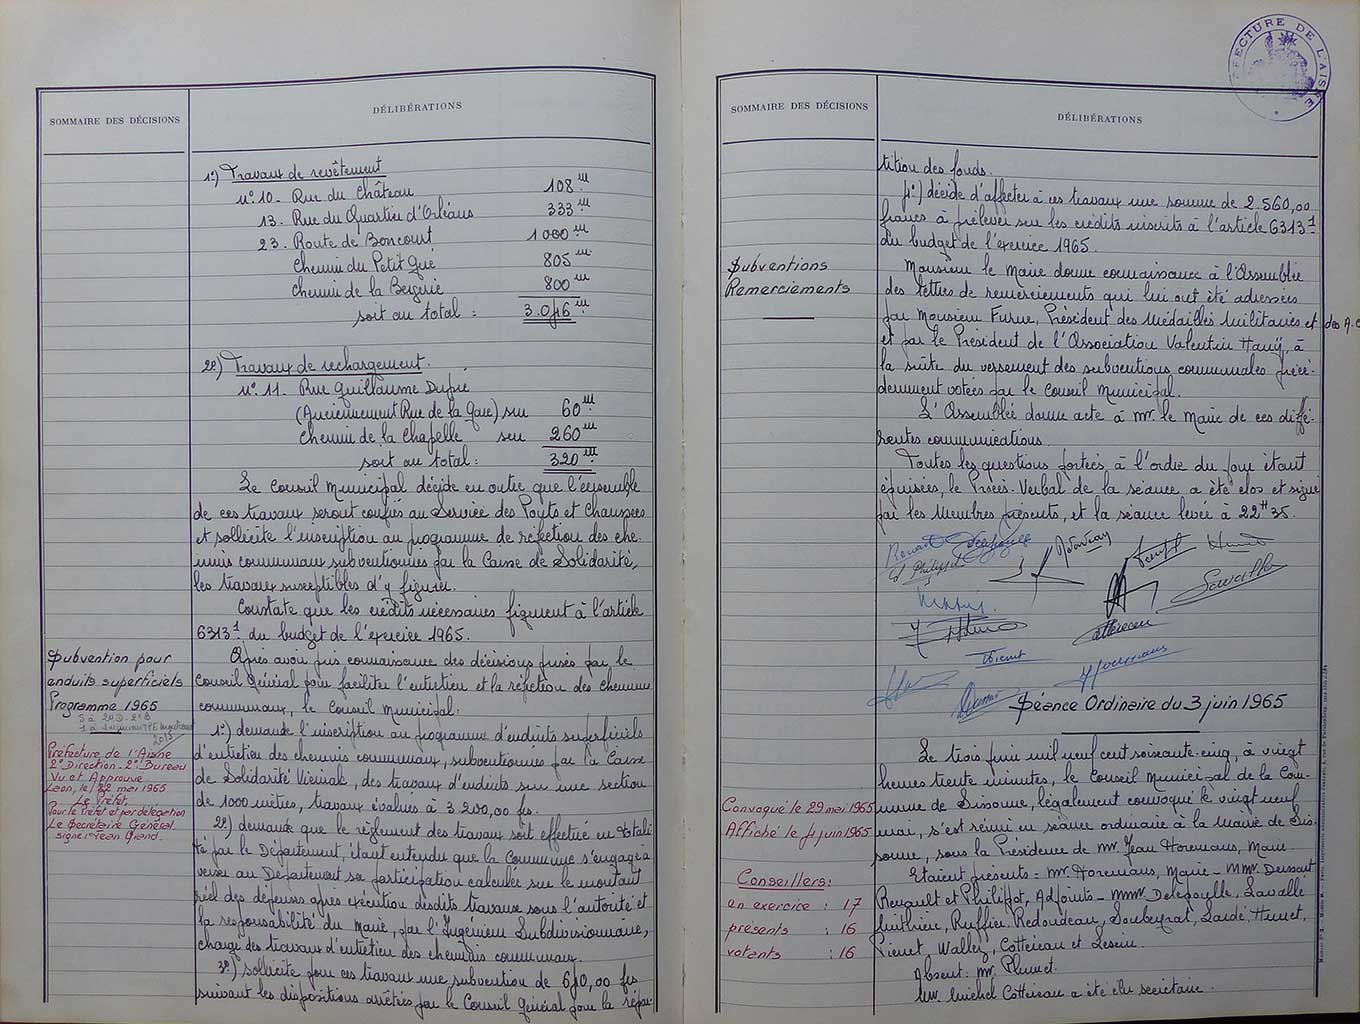 SOMMAIRE DES DÉCISIONS
DÉLIBÉRATIONS
1º) Travaux de revêtement
nº 10. Rue du Château 108 m
13. Rue du Quartier d'Orléans 333 m
23. Route de Boncourt 1000 m
Chemin du Petit Gué 805 m
Chemin de la Bergerie 800 m
soit au total : 3.046 m
2º) Travaux de rechargement.
nº 11. Rue Guillaume Dupré
(Anciennement Rue de la Gare) sur 60 m
Chemin de la Chapelle sur 260 m
soit au total : 320 m
Le Conseil Municipal décide en outre que l'ensemble
de ces travaux seront confiés au Service des Ponts et Chaussées
et sollicite l'inscription au programme de réfection des che
mins communaux subventionnés par la Caisse de Solidarité,
les travaux susceptibles d'y figurer.
Constate que les crédits nécessaires figurent à l'article
6313¹ du budget de l'exercice 1965.
Subvention pour
enduits superficiels
Programme 1965
Préfecture de l'Aisne
2º Direction. 2º Bureau
Vu et Approuvé
Laon, le 22 mai 1965
Le Préfet,
Pour le Préfet et par délégation
Le Secrétaire Général.
signé: Jean
Après avoir pris connaissance des décisions prises par le
Conseil Général pour faciliter l'entretien et la réfection des chemins
communaux, le Conseil Municipal:
1º) demande l'inscription au programme d'enduits superficiels
d'entretien des chemins communaux, subventionnés par la Caisse
de Solidarité Vicinale, des travaux d'enduits sur une section
de 1000 mètres, travaux évalués à 3 200,00 fs.
2º) demande que le règlement des travaux soit effectué en totali
té par le Département, étant entendu que la Commune s'engage à
verser au Département sa participation calculée sur le montant
réel des dépenses après exécution desdits travaux sous l'autorité et
la responsabilité du Maire, par l'Ingénieur Subdivisionnaire,
chargé des travaux d'entretien des chemins communaux.
3º) sollicite pour ces travaux une subvention de 640,00 frs
suivant les dispositions arrêtées par le Conseil Général pour la répar-
PRÉFECTURE DE L'AISNE
SOMMAIRE DES DÉCISIONS
DÉLIBÉRATIONS
tition des fonds.
4º) décide d'affecter à ces travaux une somme de 2.560,00
francs à prélever sur les crédits inscrits à l'article 6313¹
du budget de l'exercice 1965.
Subventions
Remerciements
Monsieur le Maire donne connaissance à l'Assemblée
des lettres de remerciements qui lui ont été adressées
par Monsieur Furne, Président des Médaillés Militaires et des A.C
et par le Président de l'Association Valentin Haüy, à
la suite du versement des subventions communales précé-
demment votées par le Conseil Municipal.
L'Assemblée donne acte à Mr. le Maire de ces diffé-
rentes communications.
Toutes les questions portées à l'ordre du jour étant
épuisées, le Procès-Verbal de la séance a été clos et signé
par les Membres présents, et la séance levée à 22 H 35.
Séance Ordinaire du 3 juin 1965
Convoqué le 29 mai 1965
Affiché le 4 juin 1965
Conseillers:
en exercice : 17
présents : 16
votants : 16
Le trois juin mil neuf cent soixante-cinq, à vingt
heures trente minutes, le Conseil Municipal de la Com-
mune de Sissonne, légalement convoqué le vingt neuf
mai, s'est réuni en séance ordinaire à la Mairie de Sis-
sonne, sous la Présidence de Mr Jean Horemans, Maire.
Etaient présents - Mr. Horemans, Maire - MMrs Dussart
Renault et Philippot, Adjoints - MMrs Delepoulle, Lavallé
Ruffier, Redondeau, Hunet,
Pienet, Wallez, Cottereau et
Absent: Mr. Plumet.
Mr. Michel Cottereau a été élu secrétaire.